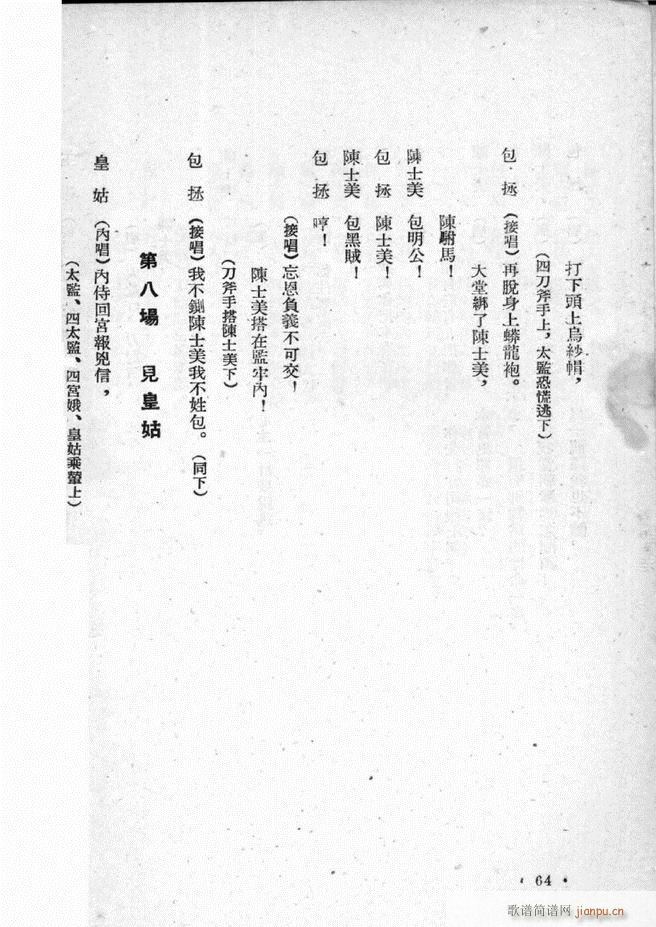 打下頭上烏紗帽，
（四刀斧手上，太監恐慌逃下）
包　拯　（接唱）再脫身上蟒龍袍。
大堂綁了陳士美，
陳駙馬！
陳士美　包明公！
包　拯　陳士美！
陳士美　包黑賊！
包　拯　哼！
（接唱）忘恩負義不可交！
陳士美搭在監牢內！
（刀斧手搭陳士美下）
包　拯　（接唱）我不鍘陳士美我不姓包。（同下）
第八場　見皇姑
皇　姑　（內唱）內侍回宮報兇信，
（太監、四太監、四宮娥、皇姑乘輦上）
· 64 ·
歌谱简谱网 jianpu.cn